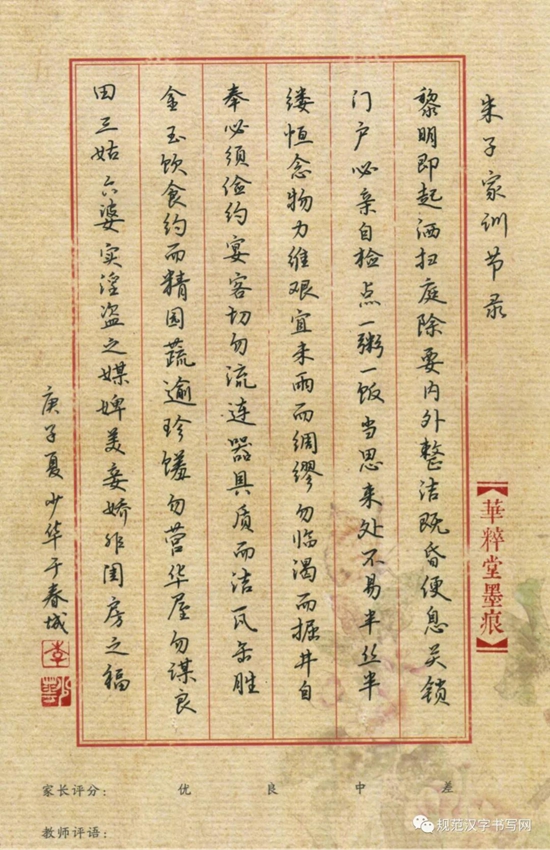 朱子家训节录
黎明即起洒扫庭除要内外整洁既昏便息关锁
门户必亲自检点一粥一饭当思来处不易半丝半
缕恒念物力维艰宜未雨而绸缪勿临渴而掘井自
奉必须俭约宴客切勿流连器具质而洁瓦缶胜
金玉饮食约而精园蔬逾珍馐勿营华屋勿谋良
田三姑六婆实淫盗之媒婢美妾娇非闺房之福
庚子夏少华于春城
李
【華粹堂墨痕】
家长评分： 优 良 中 差
教师评语：
规范汉字书写网